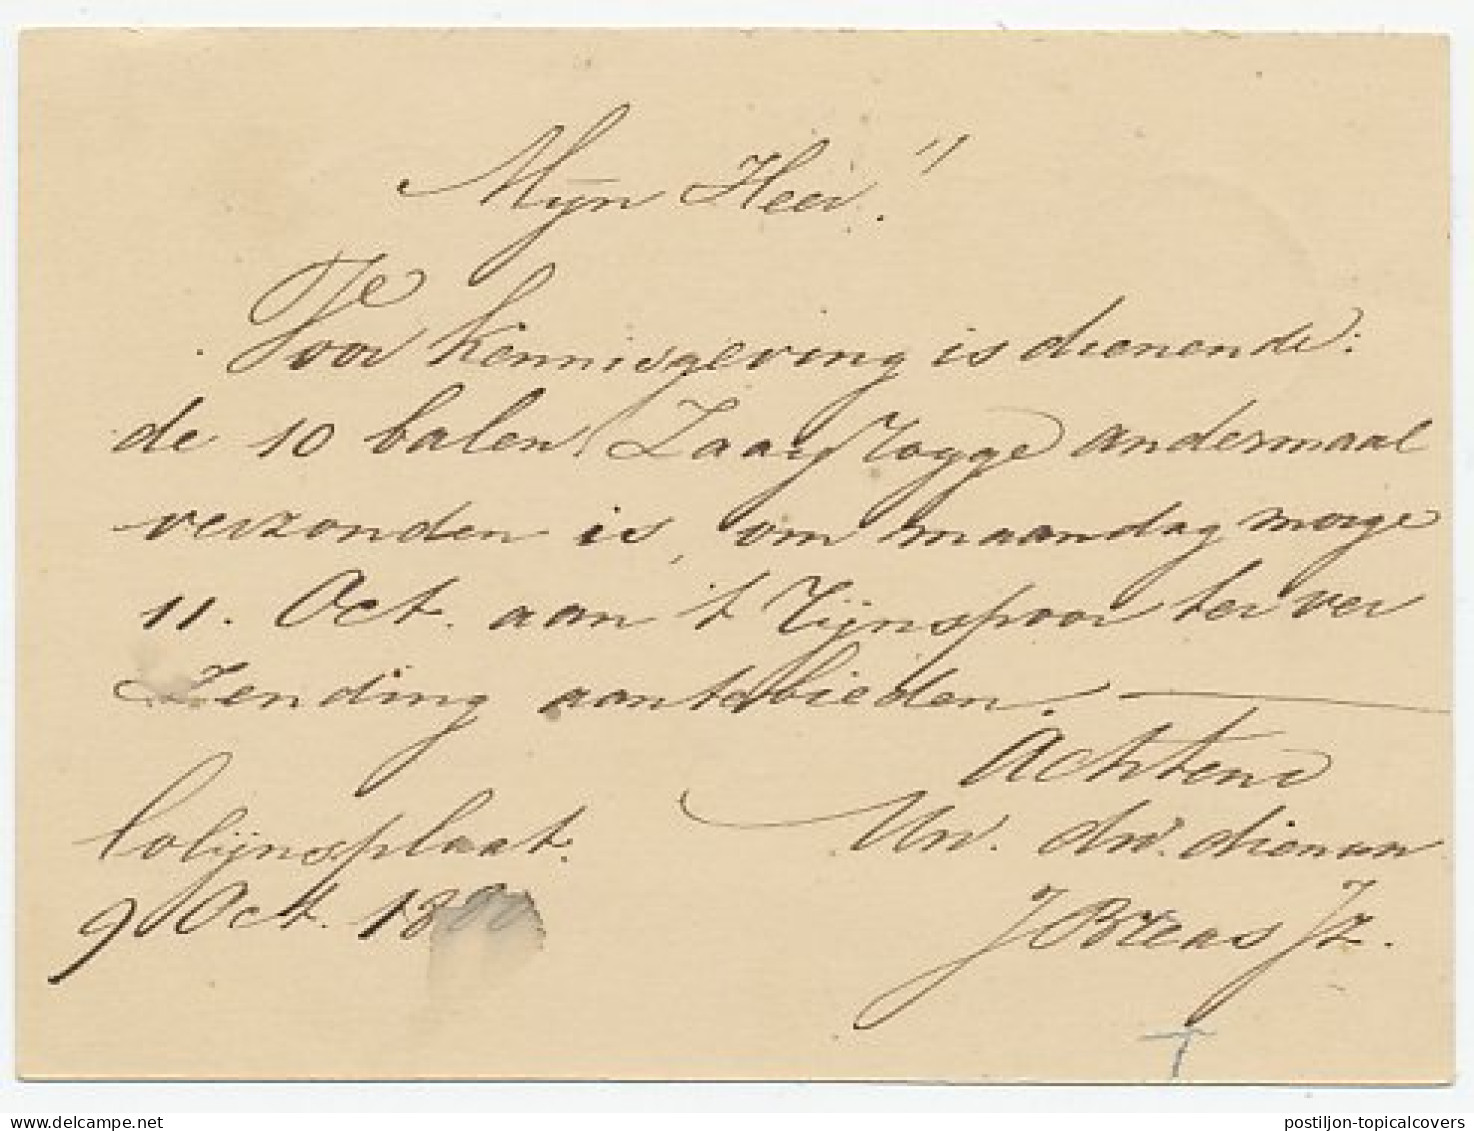 Mijn Heer!
Voor kennisgeving is dienende:
de 10 balen Zaay Rogge andermaal
verzonden is, om maandag morge
11. Oct. aan 't Rijnspoor ter ver
Zending aantebieden.
Achtend
Uw. dw. dienaar
Colijnsplaat.
9 Oct. 1880
Jz.
postiljon-topicalcovers